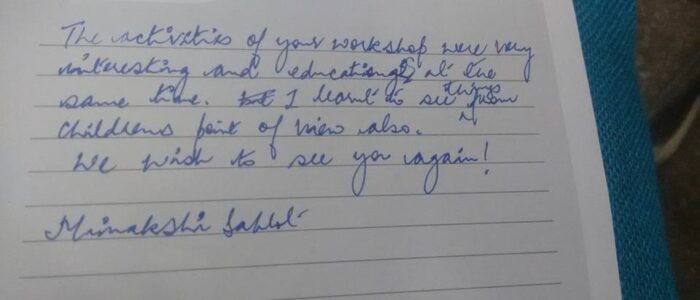 The activities of your workshop were very
interesting and educational at the
same time. I learnt to see things from
childrens point of view also.
We wish to see you again!
Minakshi